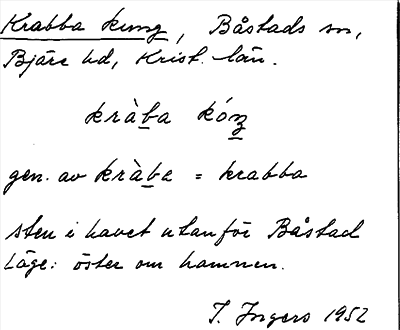 Krabba kung, Båstads sn,
Bjäre hd, Krist. län.
kràba kóŋ
gen. av kràba = krabba
sten i havet utanför Båstad
Läge: öster om hamnen.
I. Ingers 1952